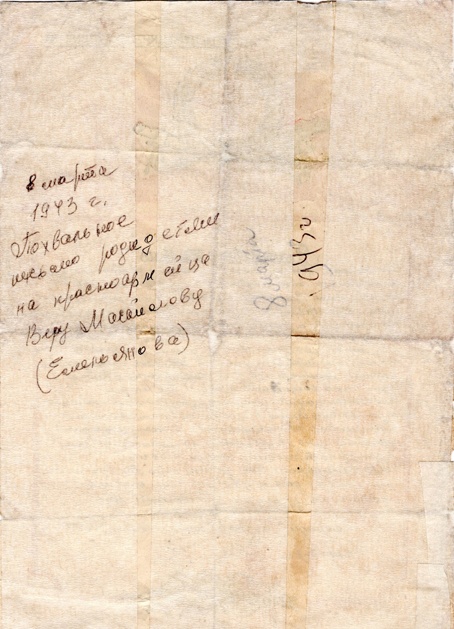 8 марта
1943 г.
Похвальное
письмо родителям
на красноармейца
Веру Михайлову
(Емельянова)
8 марта
1943г